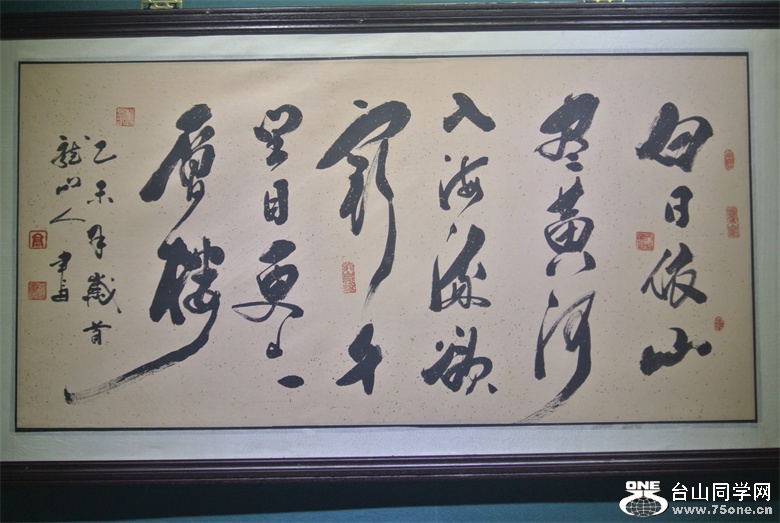 白日依山
盡黄河
入海流欲
窮千
里目更上一
層樓
乙未年歲首
ONE
台山同学网
www.75one.cn